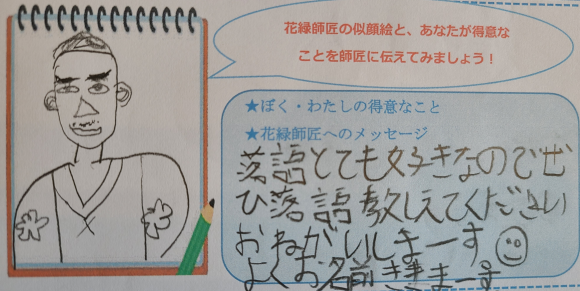 花緑師匠の似顔絵と、あなたが得意な
ことを師匠に伝えてみましょう！
★ぼく・わたしの得意なこと
★花緑師匠へのメッセージ
落語とても好きなのでぜ
ひ落語教しえてください
おねがいしまーす
よくお名前ききまーす